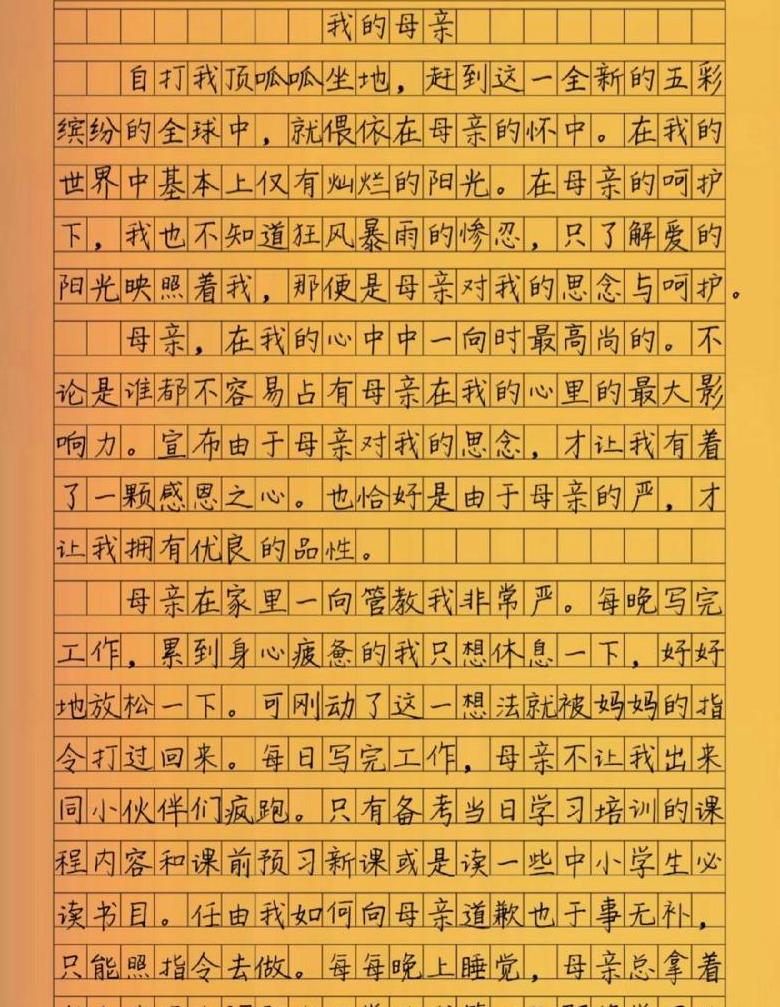 我的母亲
自打我顶呱呱坐地，赶到这一全新的五彩
缤纷的全球中，就偎依在母亲的怀中。在我的
世界中基本上仅有灿烂的阳光。在母亲的呵护
下，我也不知道狂风暴雨的惨忍，只了解爱的
阳光映照着我，那便是母亲对我的思念与呵护。
母亲，在我的心中中一向时最高尚的。不
论是谁都不容易占有母亲在我的心里的最大影
响力。宣布由于母亲对我的思念，才让我有着
了一颗感恩之心。也恰好是由于母亲的严，才
让我拥有优良的品性。
母亲在家里一向管教我非常严。每晚写完
工作，累到身心疲惫的我只想休息一下，好好
地放松一下。可刚动了这一想法就被妈妈的指
令打过回来。每日写完工作，母亲不让我出来
同小伙伴们疯跑。只有备考当日学习培训的课
程内容和课前预习新课或是读一些中小学生必
读书目。任由我如何向母亲道歉也于事无补，
只能照指令去做。每每晚上睡觉，母亲总拿着